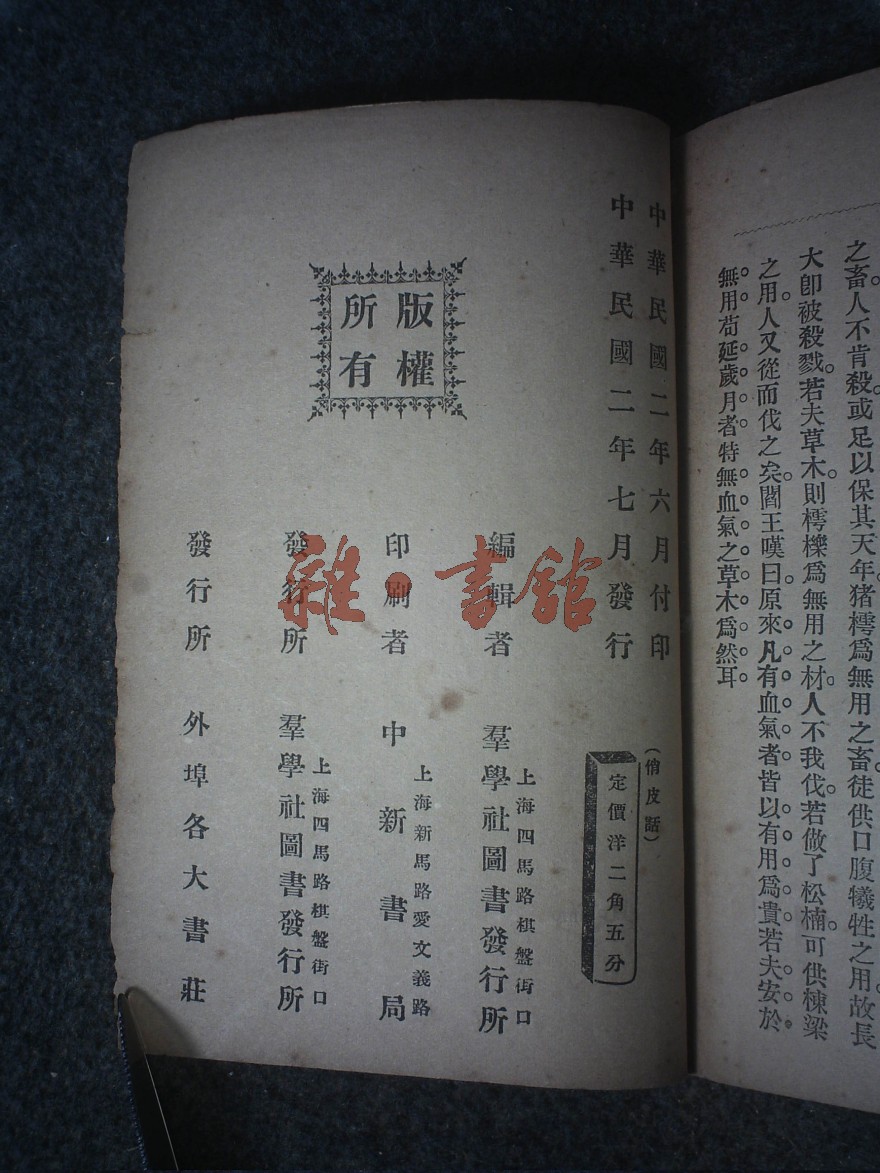 之畜人不肯殺。或足以保其天年。猪樗爲無用之畜。徒供口腹犧牲之用。故長
大卽被殺戮。若夫草木。則樗櫟爲無用之材。人不我伐。若做了松楠。可供棟梁
之用。人又從而伐之矣。閻王嘆曰。原來凡有血氣者。皆以有用爲貴。若夫安於
無用。苟延歲月者。特無血氣之草木爲然耳
中華民國二年六月付印
中華民國二年七月發行
（俏皮話）
定價洋二角五分
版權
所有
編輯者
上海四馬路棋盤街口
羣學社圖書發行所
印刷者
上海新馬路愛文義路
中新書局
發行所
上海四馬路棋盤街口
羣學社圖書發行所
發行所 外埠各大書莊
雜·書舘